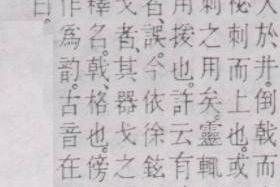 人於井。倒戟而
柲刺而上也。或
刺之用矣。靈輒
用援也。許云有
者。誤。今依徐鉉
戈者。其器戈之
釋名。戟。格也。傍
作爲韵。古音在
曰。